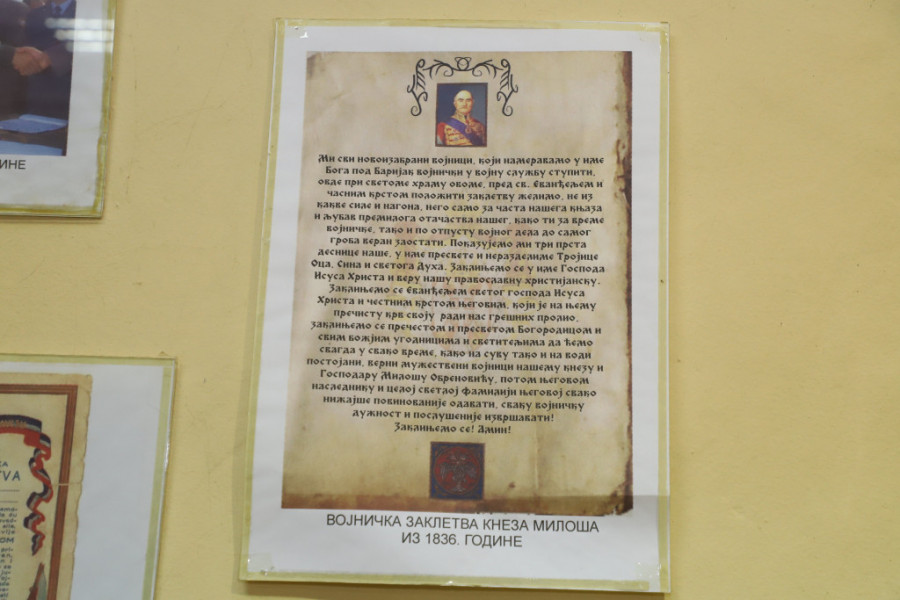 Ми сви новоизабрани војници, који намеравамо у име
Бога под Баријак војнички у војну службу ступити,
овде при светоме храму овоме, пред св. Еванђељем и
часним крстом положити заклетву желимо, не из
какве силе и нагона, него само за част нашега књаза
и љубав премилога отачаства нашег, како ти за време
војничке, тако и по отпусту војног дела до самог
гроба веран заостати. Показујемо ми три прста
деснице наше, у име пресвете и неразделиме Тројице
Оца, Сина и светога Духа. Заклињемо се у име Господа
Исуса Христа и веру нашу православну христијанску.
Заклињемо се Еванђељем светог господа Исуса
Христа и честним крстом његовим, који је на њему
пречисту крв своју ради нас грешних пролио.
Заклињемо се пречестом и пресветом Богородицом и
свим божјим угодницима и светитељима да ћемо
свагда у свако време, како на суву тако и на води
постојани, верни мужествени војници нашему кнезу и
Господару Милошу Обреновићу, потом његовом
наследнику и целој светлој фамилији његовој свако
нижајше повинованије одавати, сваку војничку
дужност и послушеније извршавати!
Заклињемо се! Амин!
ВОЈНИЧКА ЗАКЛЕТВА КНЕЗА МИЛОША
ИЗ 1836. ГОДИНЕ
ИНЕ
TVA